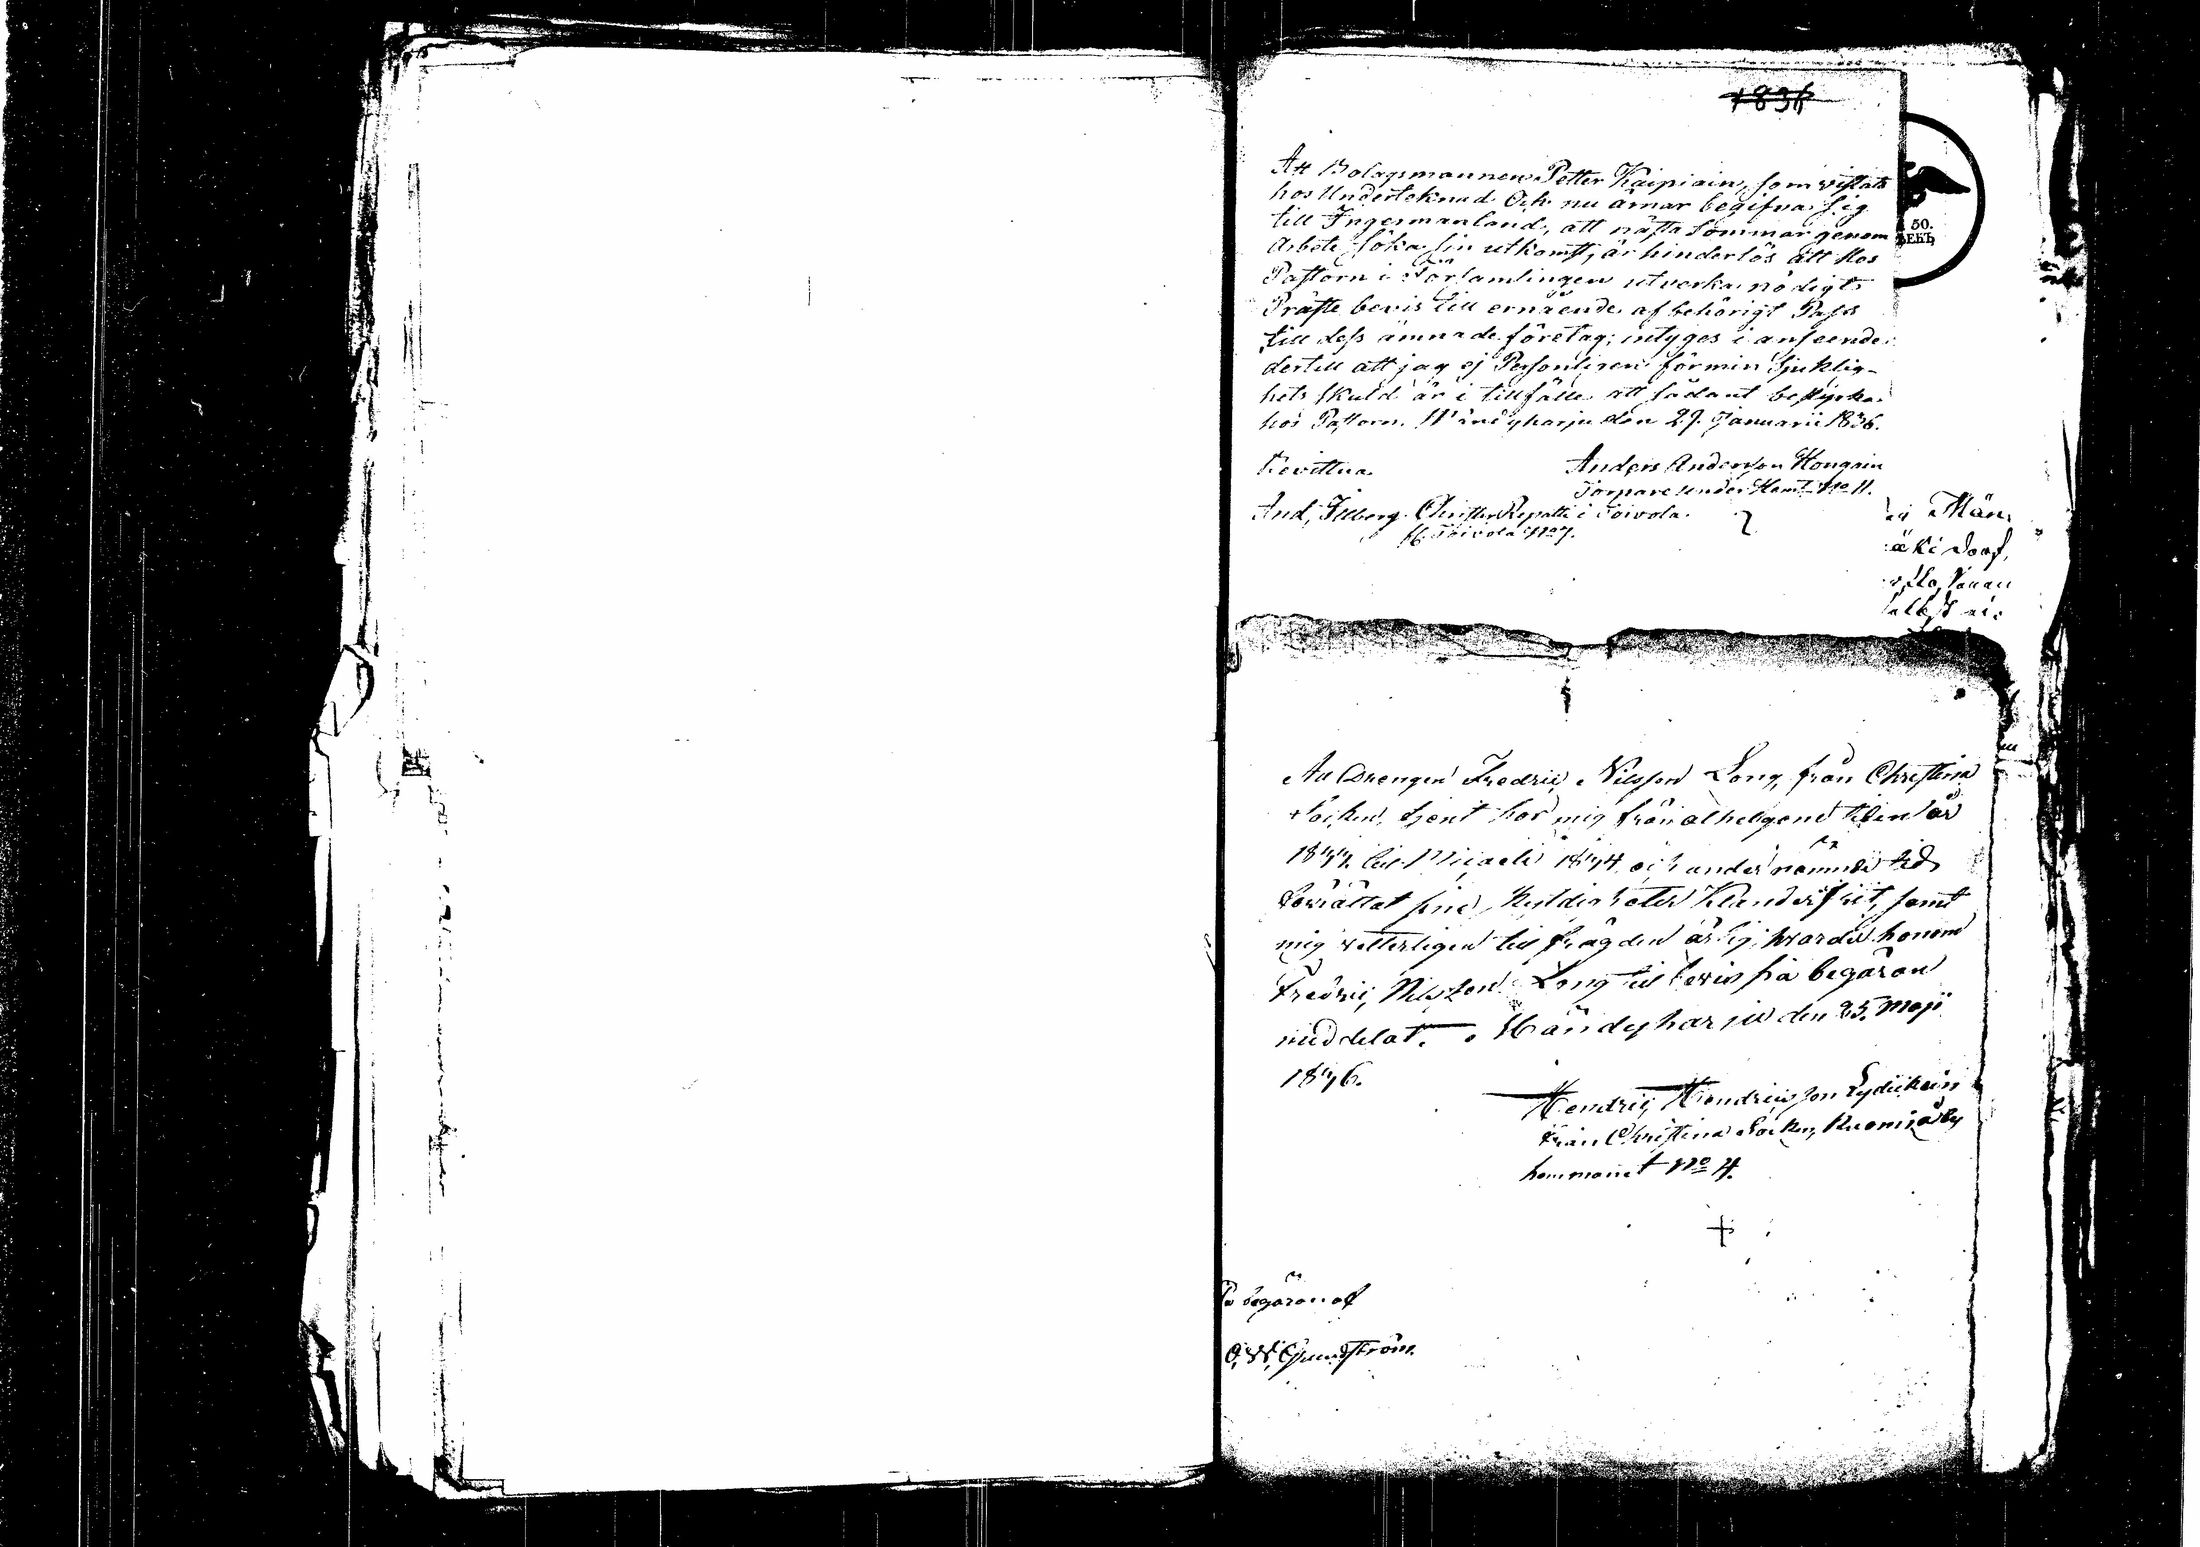 1836
Att Bolagsmannen Petter Kaipiain, som vistats
hos Undertecknad Och nu ämar begifva sig
till Ingermanland, att nästa Sommar genom
Arbete söka sin utkomst, är hinderlös att hos
Pastorn i Församlingen utverka nödigt
Präste bevis till ernående af behörigt Pass
till dess ämnade företag; intyges i anseende
dertill att jag ej Personligen för min Sjuklig-
hets skuld är i tillfälle att sådant bestyrka
hos Pastorn. Mändyharju den 27. Januarii 1836.
Bevittna Anders Andersson Hongain
Torpare under Hemt No 11.
And, Illberg. Christer Repatti i Toivola.
fr. Toivola No 7.
50.
Män,
äki Dorf,
Att Drengen Fredric Nilsson Long, från Christina
Socken, tjent hos mig från alhelgone tiden år
till Micaeli och under nämnde tid
förrättat sine skyldigheter klanderfrit, samt
mig vetterligen till frägden ärlig; warder honom
Fredric, Nilsson Long til bevis på begäran
meddelat. Mändyharju den 25. Maji
1846.
Hendric Hendricsson Lydickain
från Christina Socken, by
hemmanet No 4.
På begäran af
O. W. Grundström.